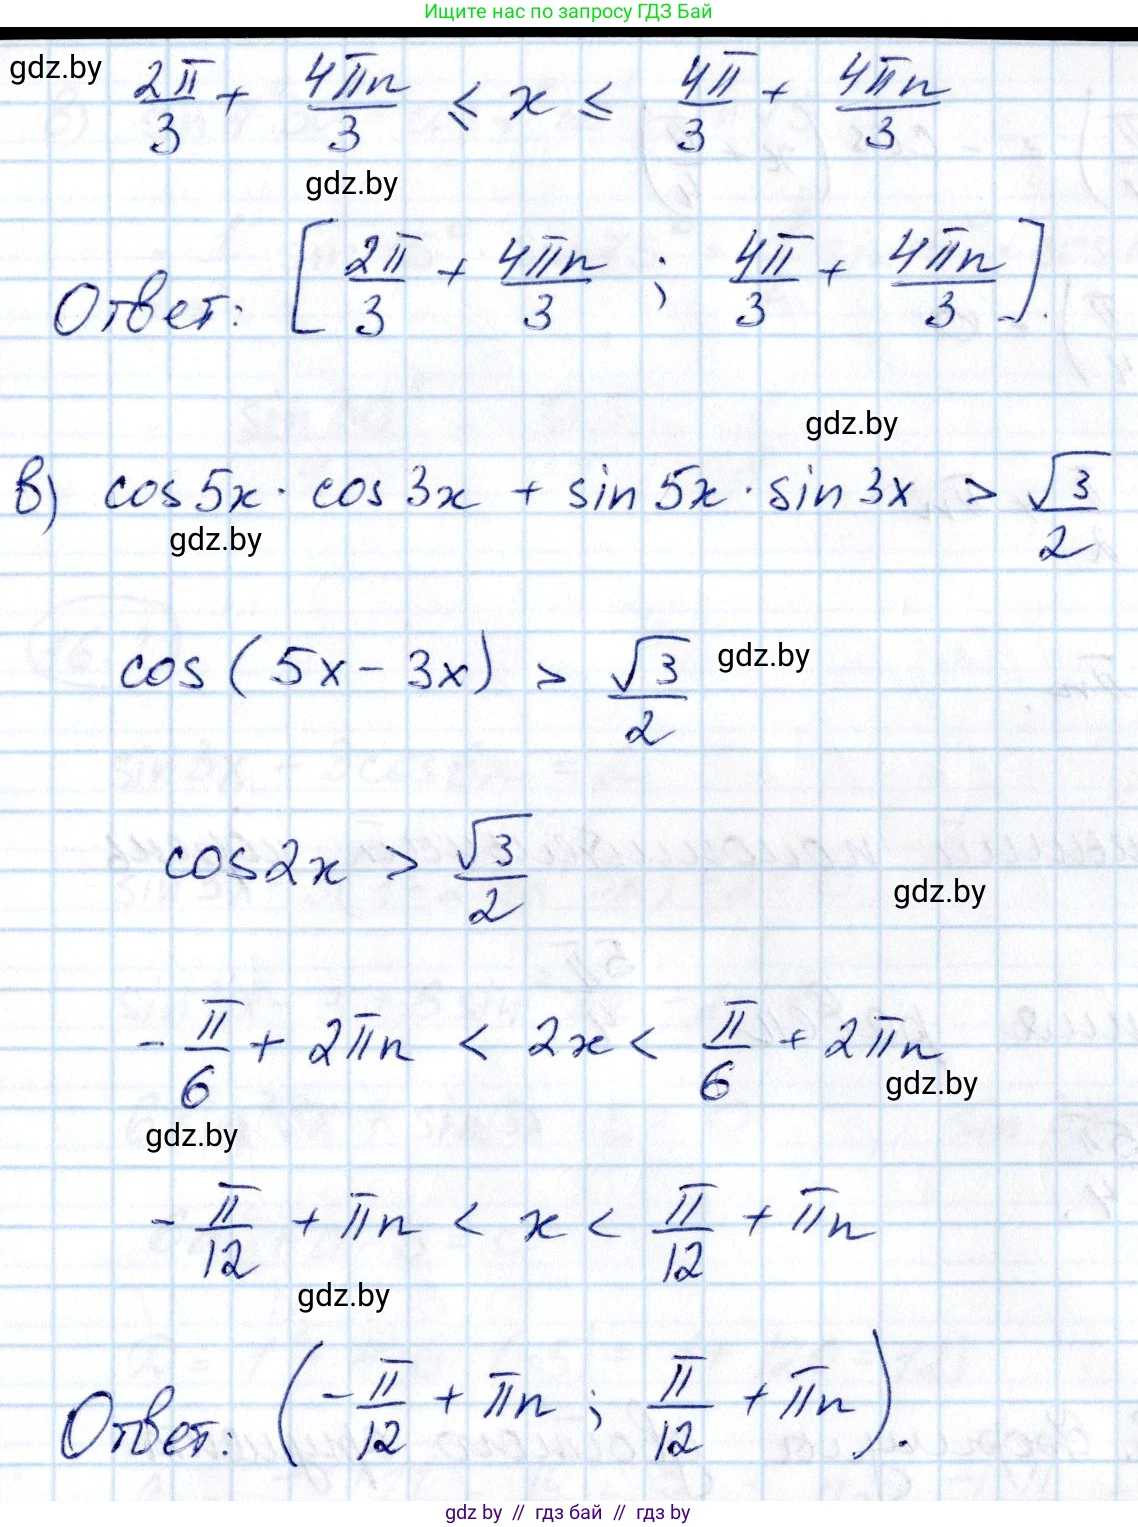 Ищите нас по запросу ГДЗ Бай
gdz.by
2π/3 + 4πn/3 ≤ x ≤ 4π/3 + 4πn/3
gdz.by
Ответ: [2π/3 + 4πn/3 ; 4π/3 + 4πn/3].
gdz.by
в) cos5x · cos3x + sin5x · sin3x > √3/2
gdz.by
cos(5x - 3x) > √3/2
gdz.by
cos2x > √3/2
gdz.by
-π/6 + 2πn < 2x < π/6 + 2πn
gdz.by
gdz.by
-π/12 + πn < x < π/12 + πn
gdz.by
Ответ: (-π/12 + πn ; π/12 + πn).
gdz by // гдз бай // gdz by